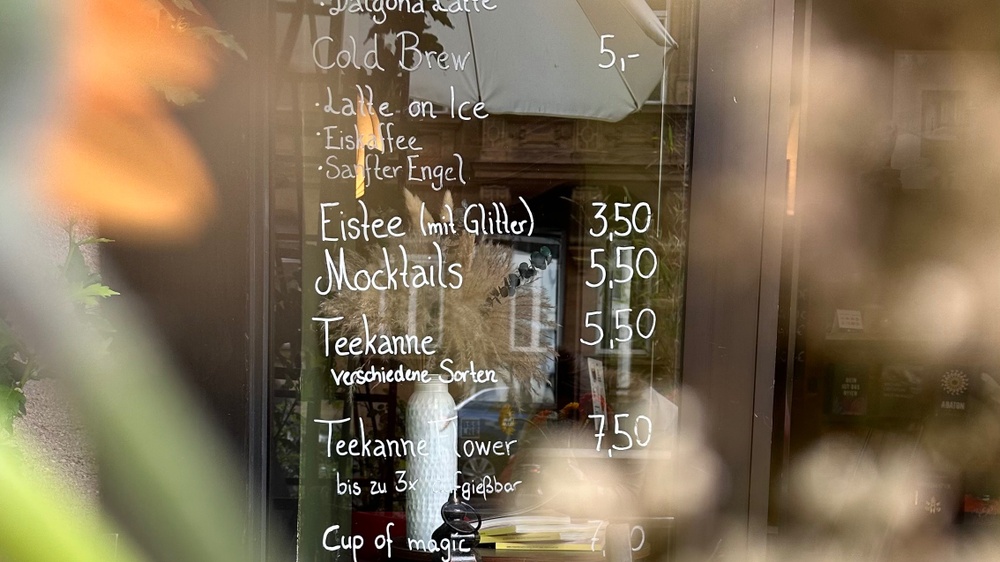 · Dalgona Latte
Cold Brew 5,-
· Latte on Ice
· Eiskaffee
· Sanfter Engel
Eistee (mit Glitter) 3,50
Mocktails 5,50
Teekanne 5,50
verschiedene Sorten
Teekanne Flower 7,50
bis zu 3x aufgießbar
Cup of magic